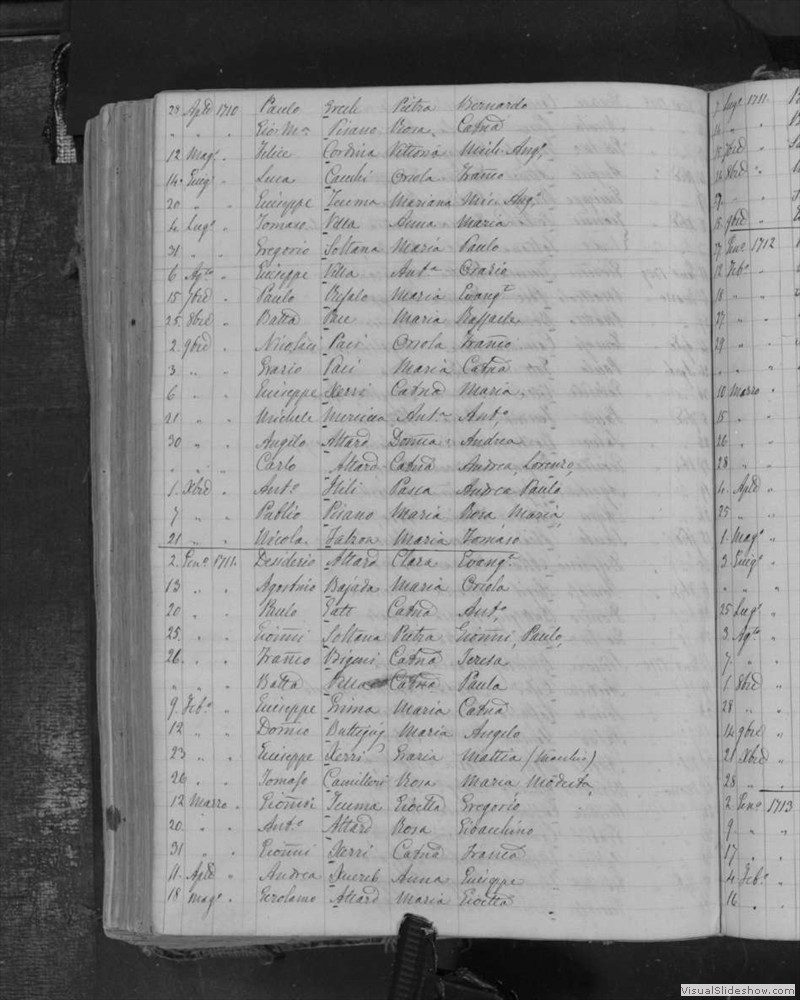 28 Aple 1710 Paulo Erceli Pietra Bernardo
" " " Gio: Ma Pisano Rosa Catna
12 Magº " Felice Cordina Vittoria Mich: Angº
14 Giugº " Luca Cauchi Orsola Franco
20 " " Giuseppe Teuma Mariana Mic: Angº
4 Lugº " Tomaso Villa Anna Maria
31 " " Gregorio Soltana Maria Paulo
6 Agto " Giuseppe Villa Anta Orario
15 7bre " Paulo Bufalo Maria Evangta
25 8bre " Batta Pace Maria Raffaele
2 9bre " Nicolaci Paci Orsola Franco
3 " " Grario Paci Maria Catna
6 " " Giuseppe Xerri Catna Maria
21 " " Michele Mercieca Anta Antº
30 " " Angelo Attard Domca Andrea
" " " Carlo Attard Catna Andrea Lorenzo
1 Xbre " Antº Hili Pasca Andrea Paulo
7 " " Publio Pisano Maria Rosa Maria
21 " " Nicola Maria Tomaso
2 Genº 1711 Desiderio Attard Clara Evangta
13 " " Agostino Bajada Maria Orsola
20 " " Paulo Gatt Catna Antº
25 " " Gioñni Soltana Pietra Gioñni, Paulo,
26 " " Franco Bigeni Catna Teresa
" " " Batta Villa Catna Paula
9 Febº " Giuseppe Grima Maria Catna
12 " " Domco Buttigieg Maria Angelo
23 " " Giuseppe Xerri Grazia Mattia (Maschio)
26 " " Tomaso Camilleri Rosa Maria Modesta
12 Marzo " Gioñni Teuma Gioetta Gregorio
20 " " Antº Attard Rosa Gioachino
31 " " Gioñni Xerri Catna Franca
11 Aple " Andrea Xuereb Anna Giuseppe
18 Magº " Gerolamo Attard Maria Gioetta
7 Lugº 1711
" "
15 7bre "
8bre "
9 "
18 9bre "
27 Genº 1712
12 Febº "
18 " "
27 " "
29 " "
" "
10 Marzo "
15 "
26 "
28 "
4 Aple "
25 "
1 Magº "
3 Giugº "
" "
25 Lugº "
3 Agto "
7 "
1 8bre "
28 " "
14 9bre "
21 Xbre "
28 " "
2 Genº 1713
9 " "
17 " "
4 Febº "
16 " "
VisualSlideshow.com